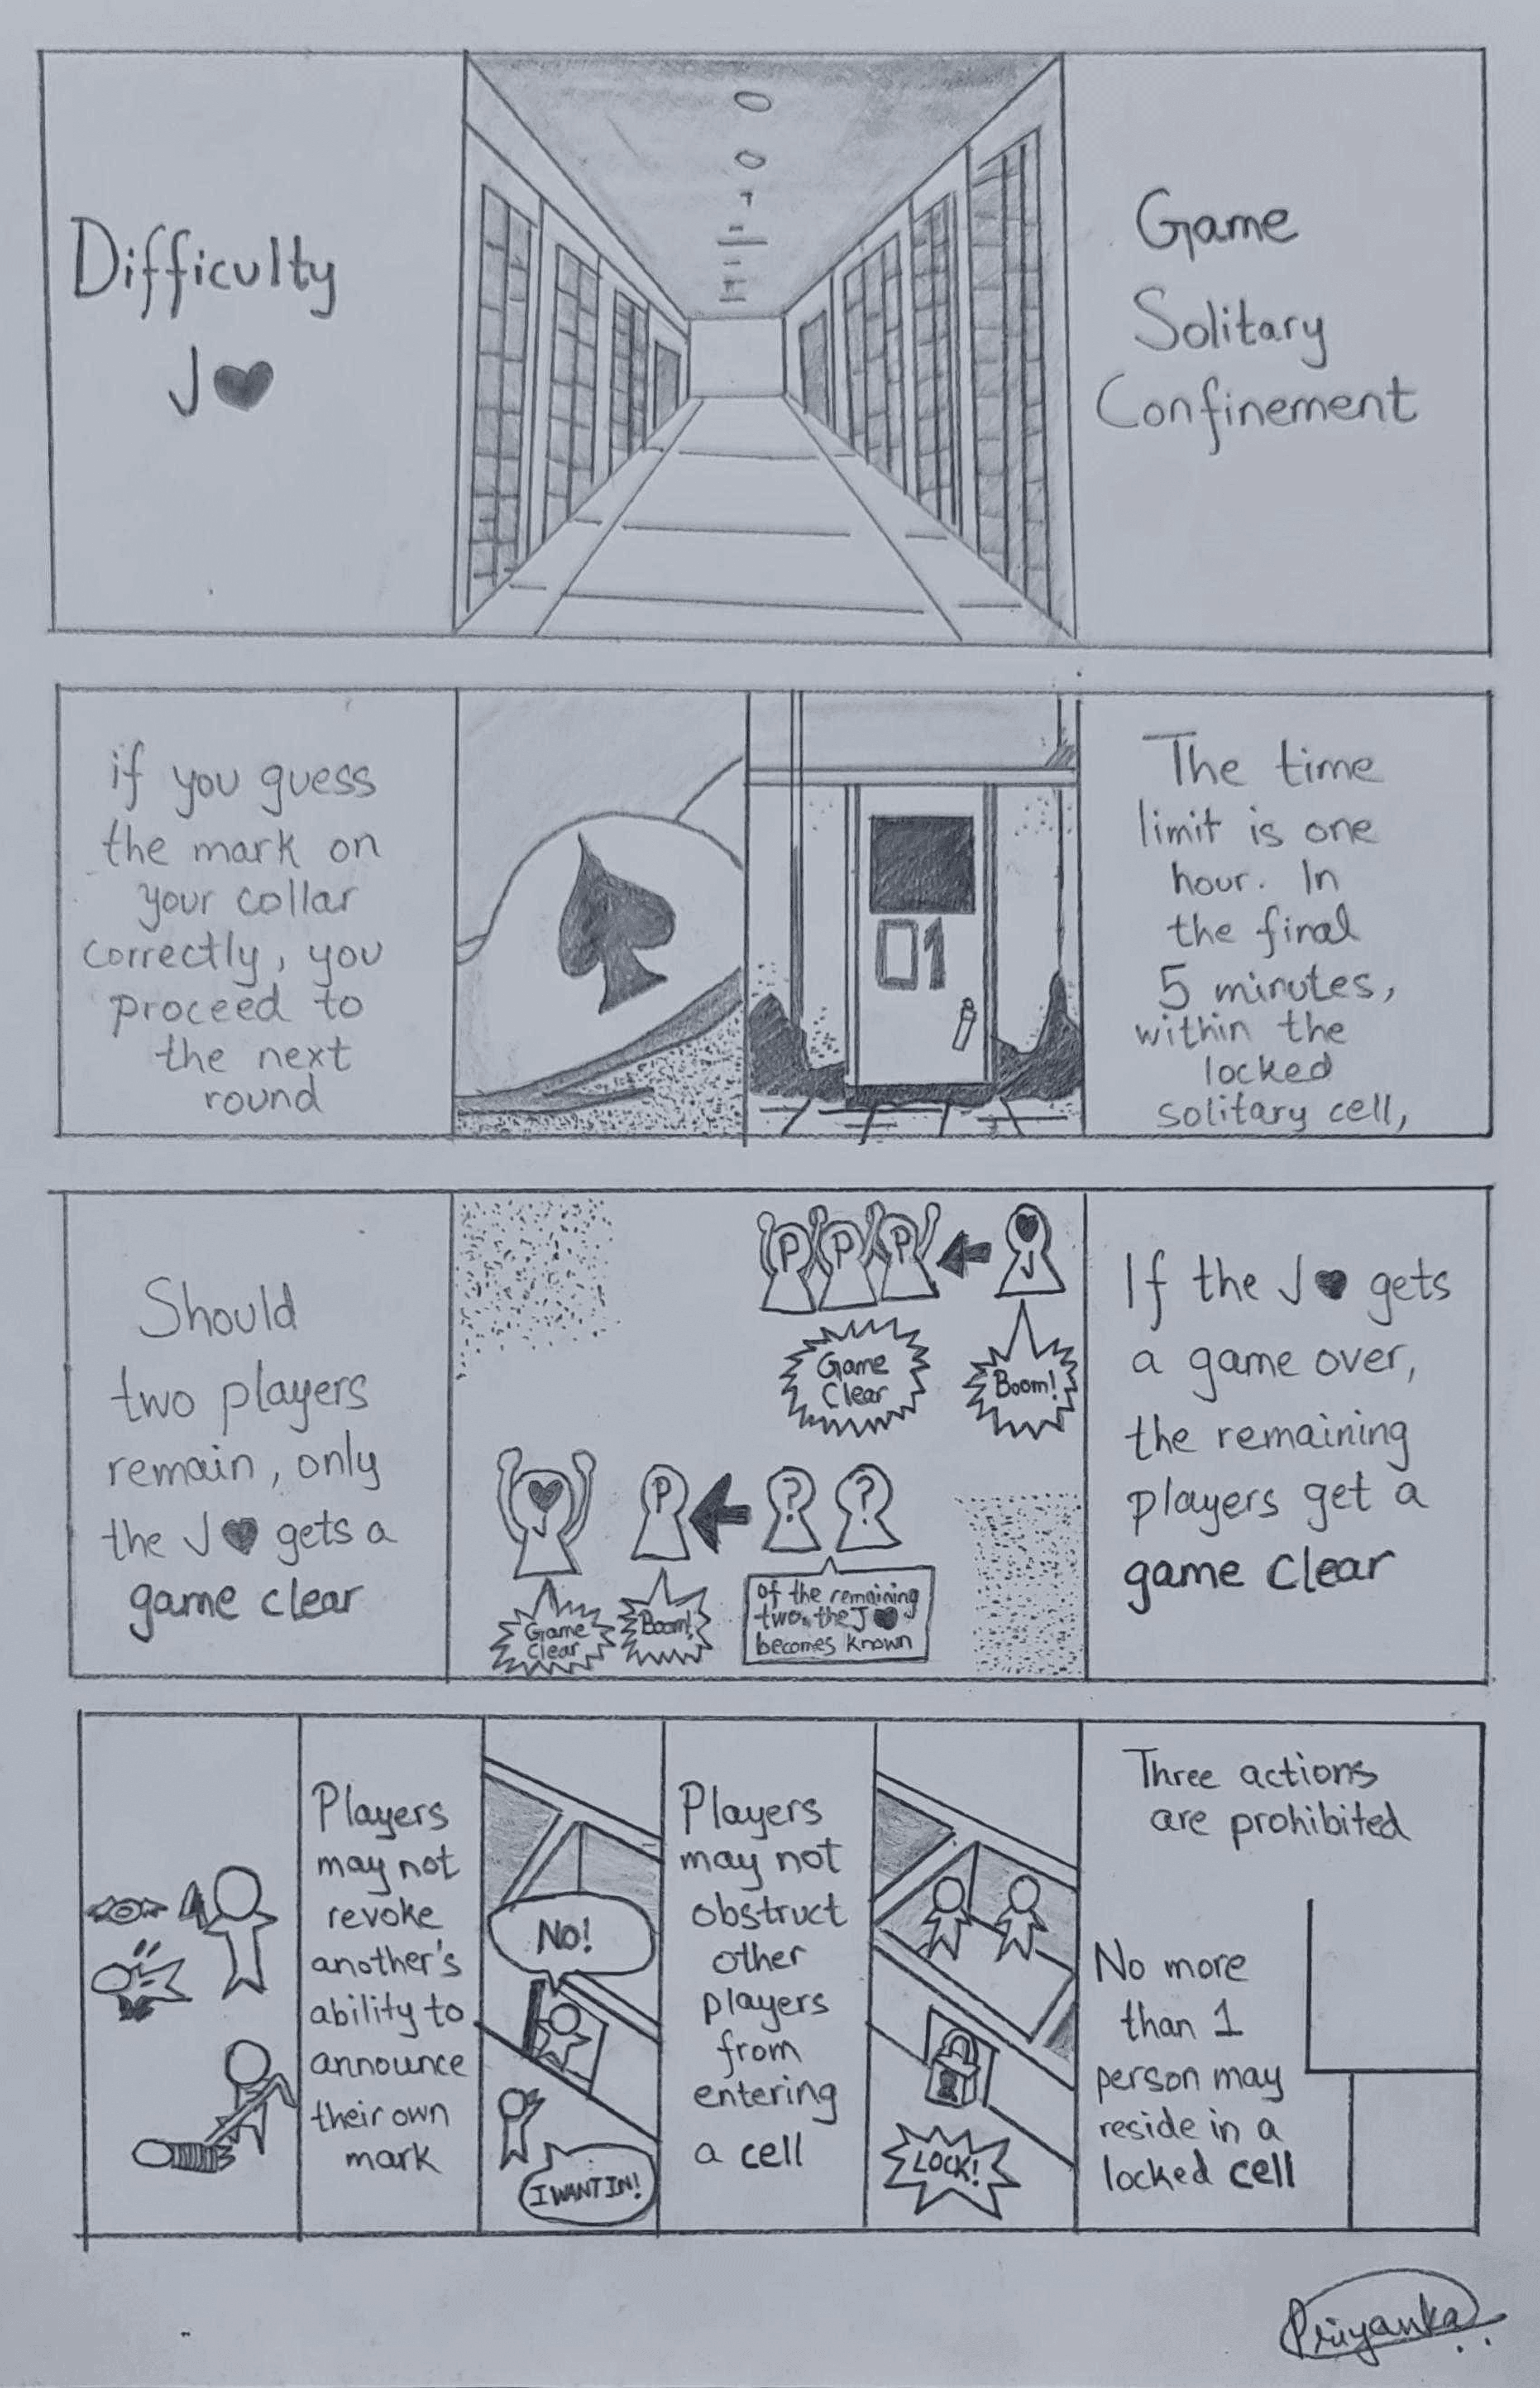 Game
Solitary
Confinement
Difficulty
J♥
The time
limit is one
hour. In
the final
5 minutes,
within the
locked
solitary cell,
01
if you guess
the mark on
your collar
correctly, you
proceed to
the next
round
If the J♥ gets
a game over,
the remaining
players get a
game clear
J
P P P
Boom!
Game
Clear
? ?
of the remaining
two, the J♥
becomes known
P
Boom!
J
Game
Clear
Should
two players
remain, only
the J♥ gets a
game clear
Three actions
are prohibited
No more
than 1
person may
reside in a
locked cell
LOCK!
Players
may not
obstruct
other
players
from
entering
a cell
No!
I WANT IN!
Players
may not
revoke
another's
ability to
announce
their own
mark
Priyanka